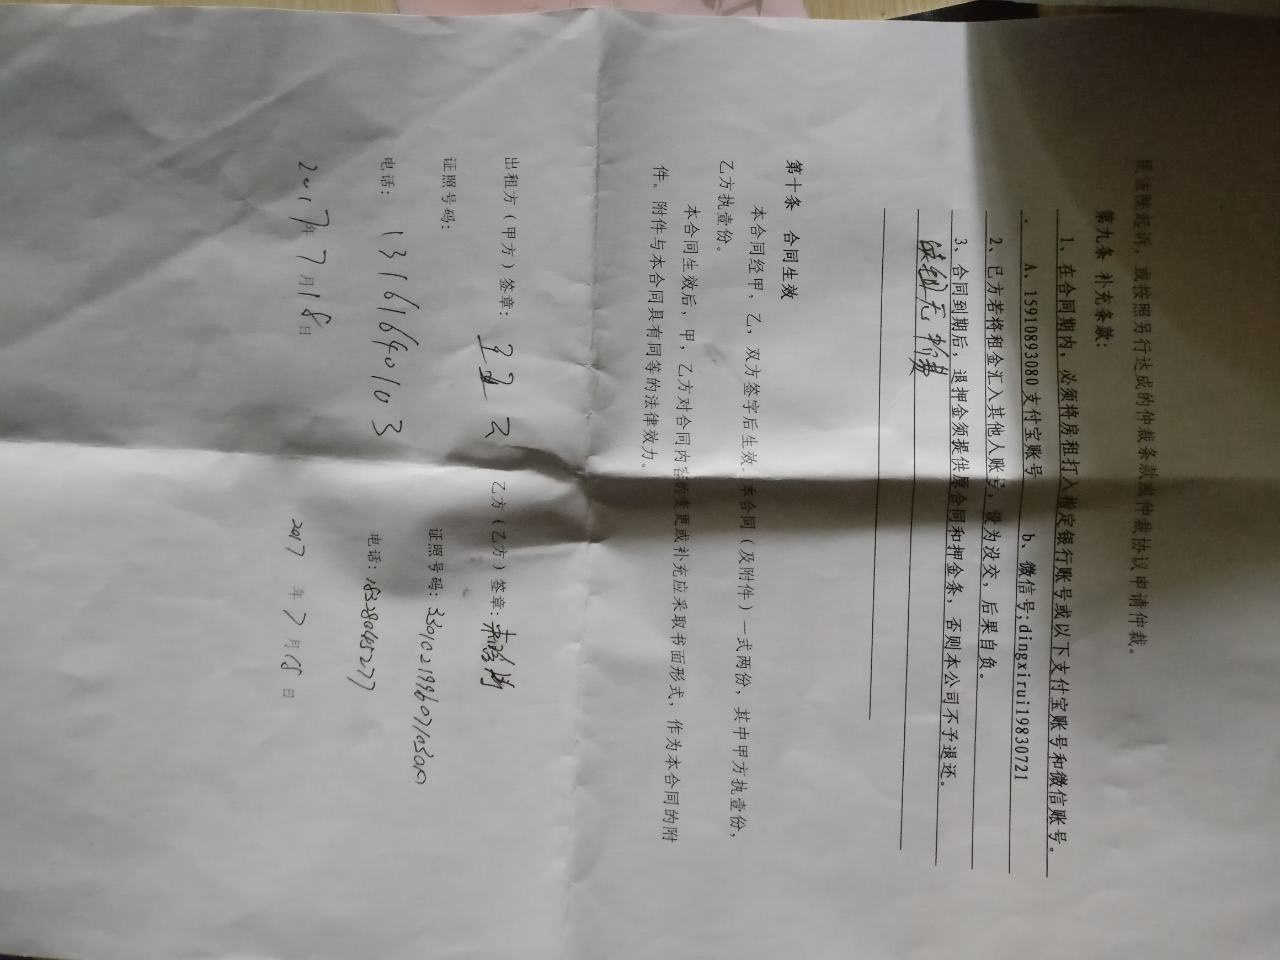 民法院起诉，或按照另行达成的仲裁条款或仲裁协议申请仲裁。
第九条 补充条款：
1、在合同期内，必须将房租打入指定银行账号或以下支付宝账号和微信账号。
A、15910893080 支付宝账号 b、微信号;dingxirui19830721
2、已方若将租金汇入其他人账号，设为没交，后果自负。
3、合同到期后，退押金须提供原合同和押金条，否则本公司不予退还。
第十条 合同生效
本合同经甲、乙，双方签字后生效。本合同（及附件）一式两份，其中甲方执壹份，
乙方执壹份。
本合同生效后，甲，乙方对合同内容的变更或补充应采取书面形式，作为本合同的附
件。附件与本合同具有同等的法律效力。
出租方（甲方）签章： 乙方（乙方）签章：
证照号码： 证照号码：
电话：13161640103 电话：18328045277
2017年7月18日 2017年7月18日